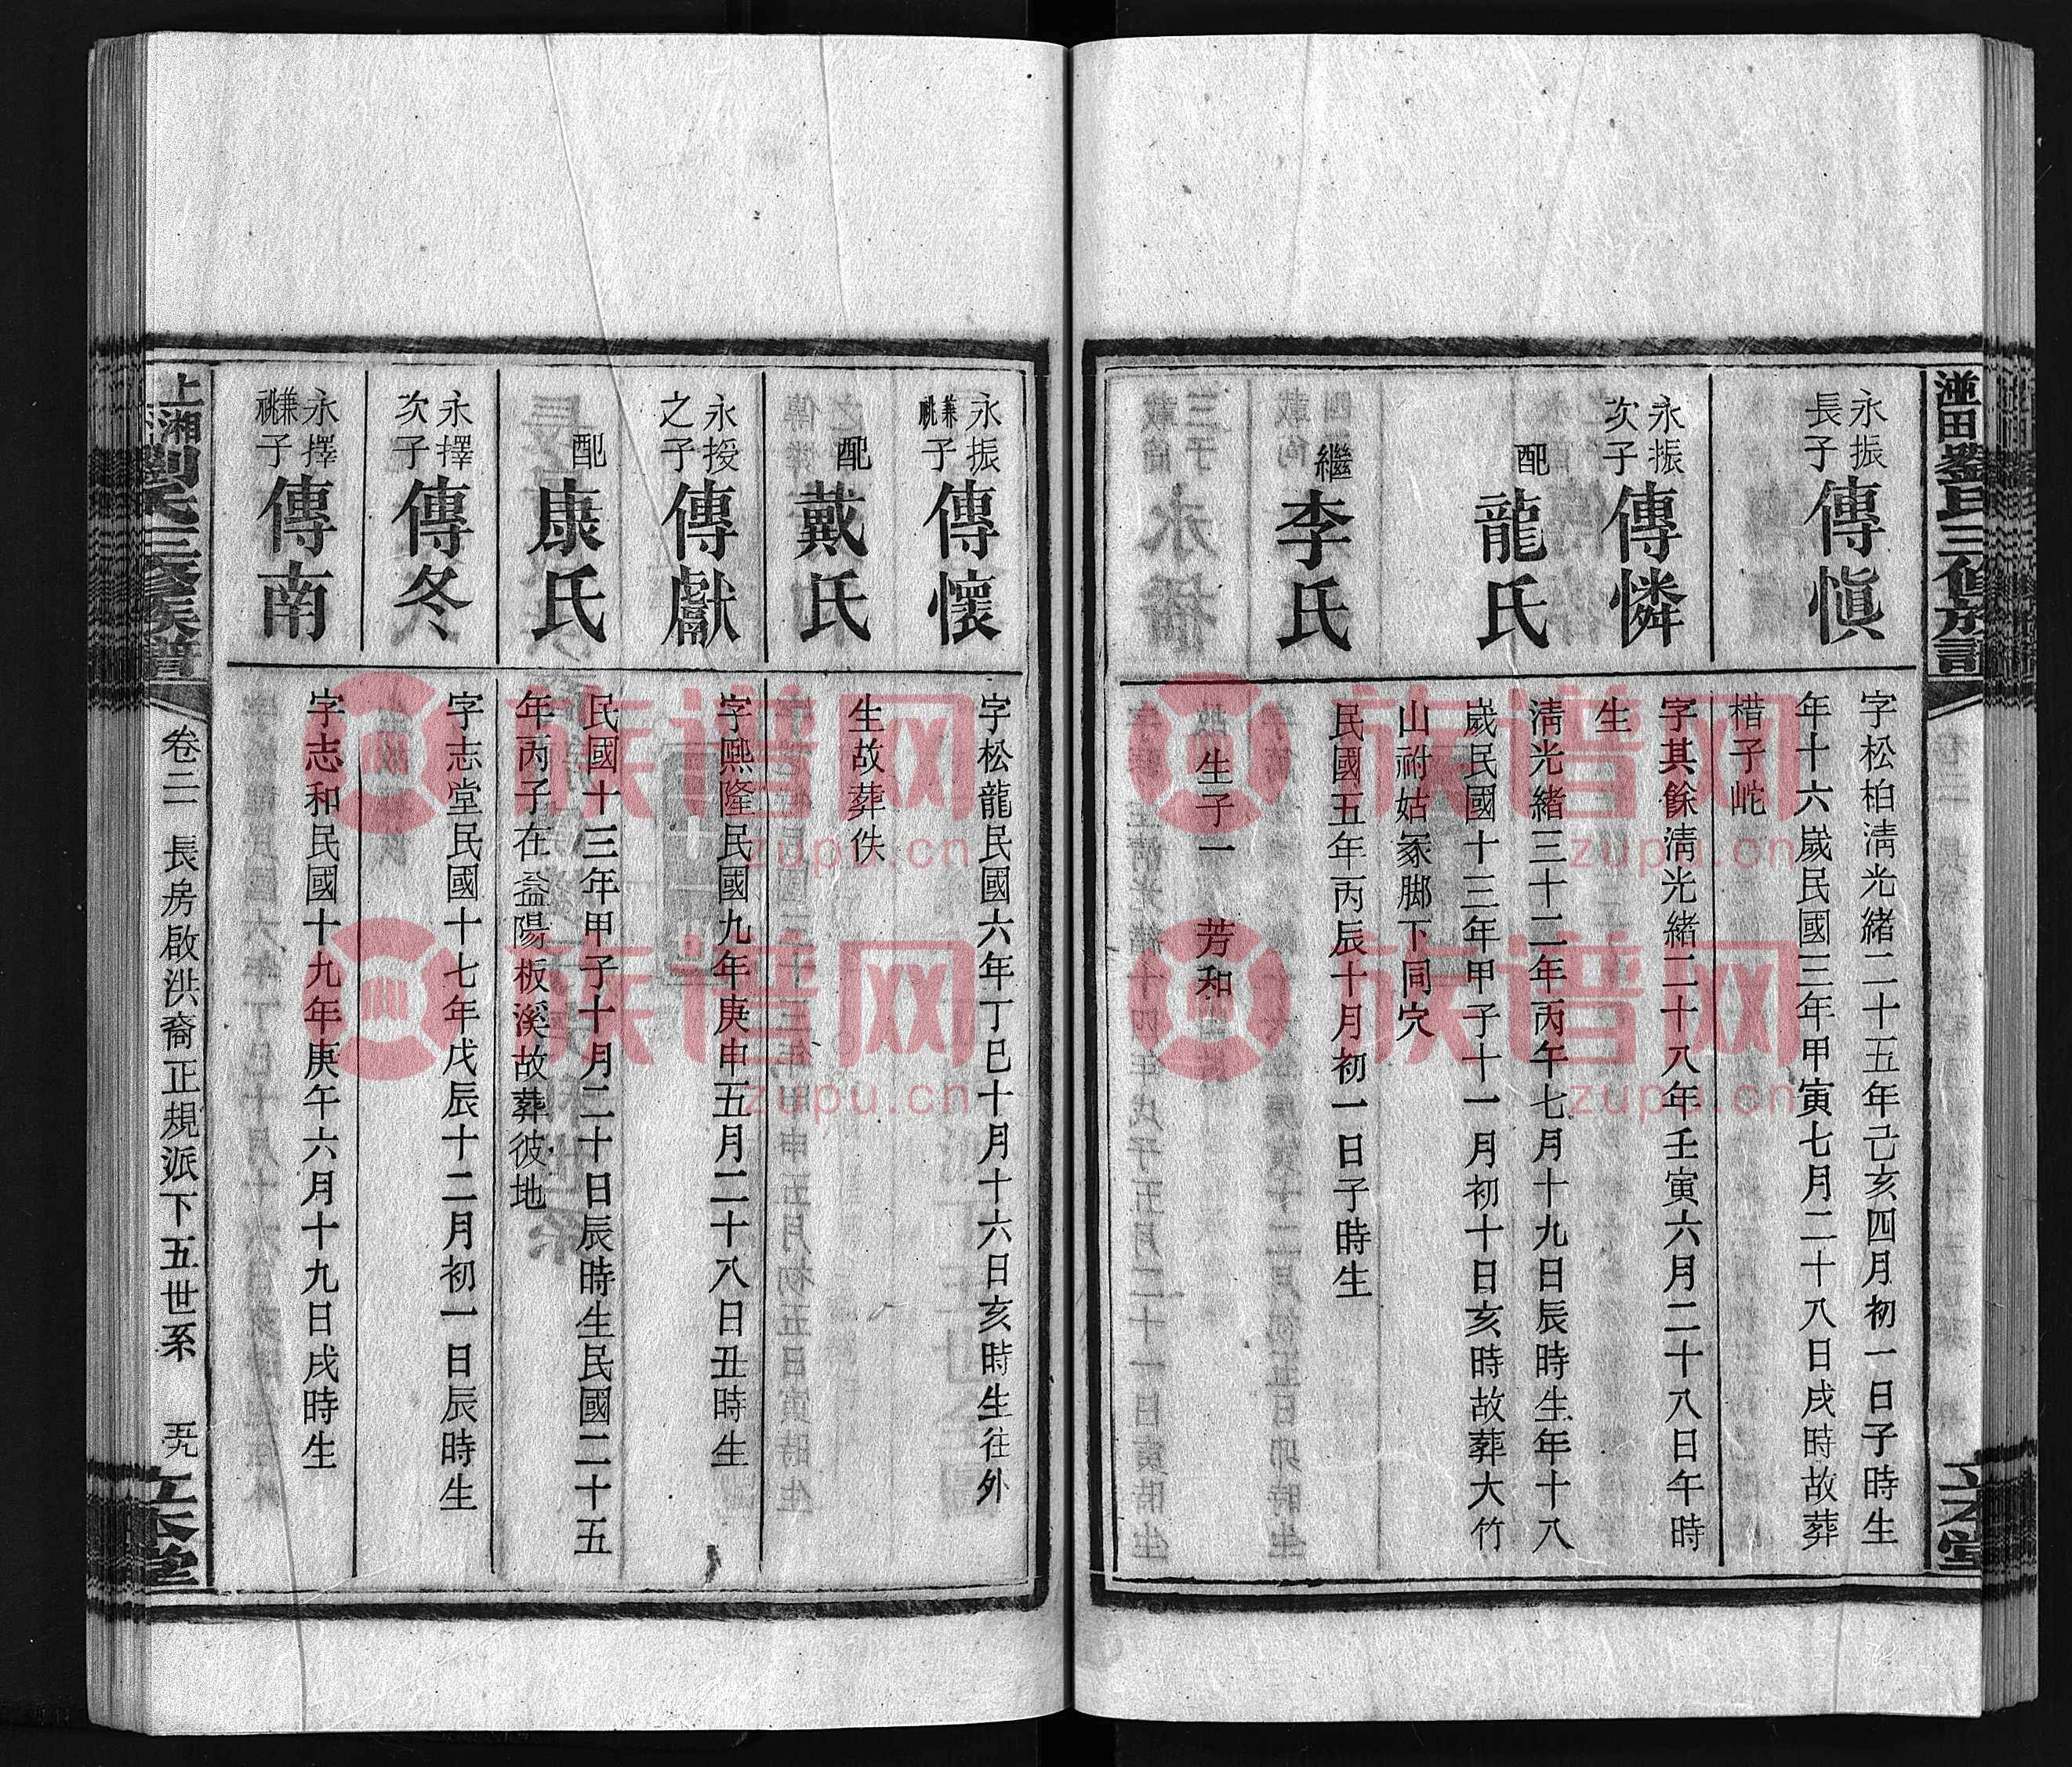 永振
長子
傳愼
字松柏淸光緒二十五年己亥四月初一日子時生
年十六歲民國三年甲寅七月二十八日戌時故葬
楷子屹
永振
次子
傳憐
字其餘淸光緒二十八年壬寅六月二十八日午時
生
配
龍氏
淸光緒三十二年丙午七月十九日辰時生年十八
歲民國十三年甲子十一月初十日亥時故葬大竹
山祔姑冡脚下同穴
繼
李氏
民國五年丙辰十月初一日子時生
生子一 芳和
立本堂
永振
兼祧子
傳懷
字松龍民國六年丁巳十月十六日亥時生往外
配
戴氏
生故葬佚
永授
之子
傳獻
字熙隆民國九年庚申五月二十八日丑時生
配
康氏
民國十三年甲子十月二十日辰時生民國二十五
年丙子在益陽板溪故葬彼地
永擇
次子
傳冬
字志堂民國十七年戊辰十二月初一日辰時生
永擇
兼祧子
傳南
字志和民國十九年庚午六月十九日戌時生
上湘劉氏三修族譜
卷二 長房啟洪裔正規派下五世系
立本堂
族谱网
zupu.cn
族谱网
zupu.cn
族谱网
zupu.cn
族谱网
zupu.cn